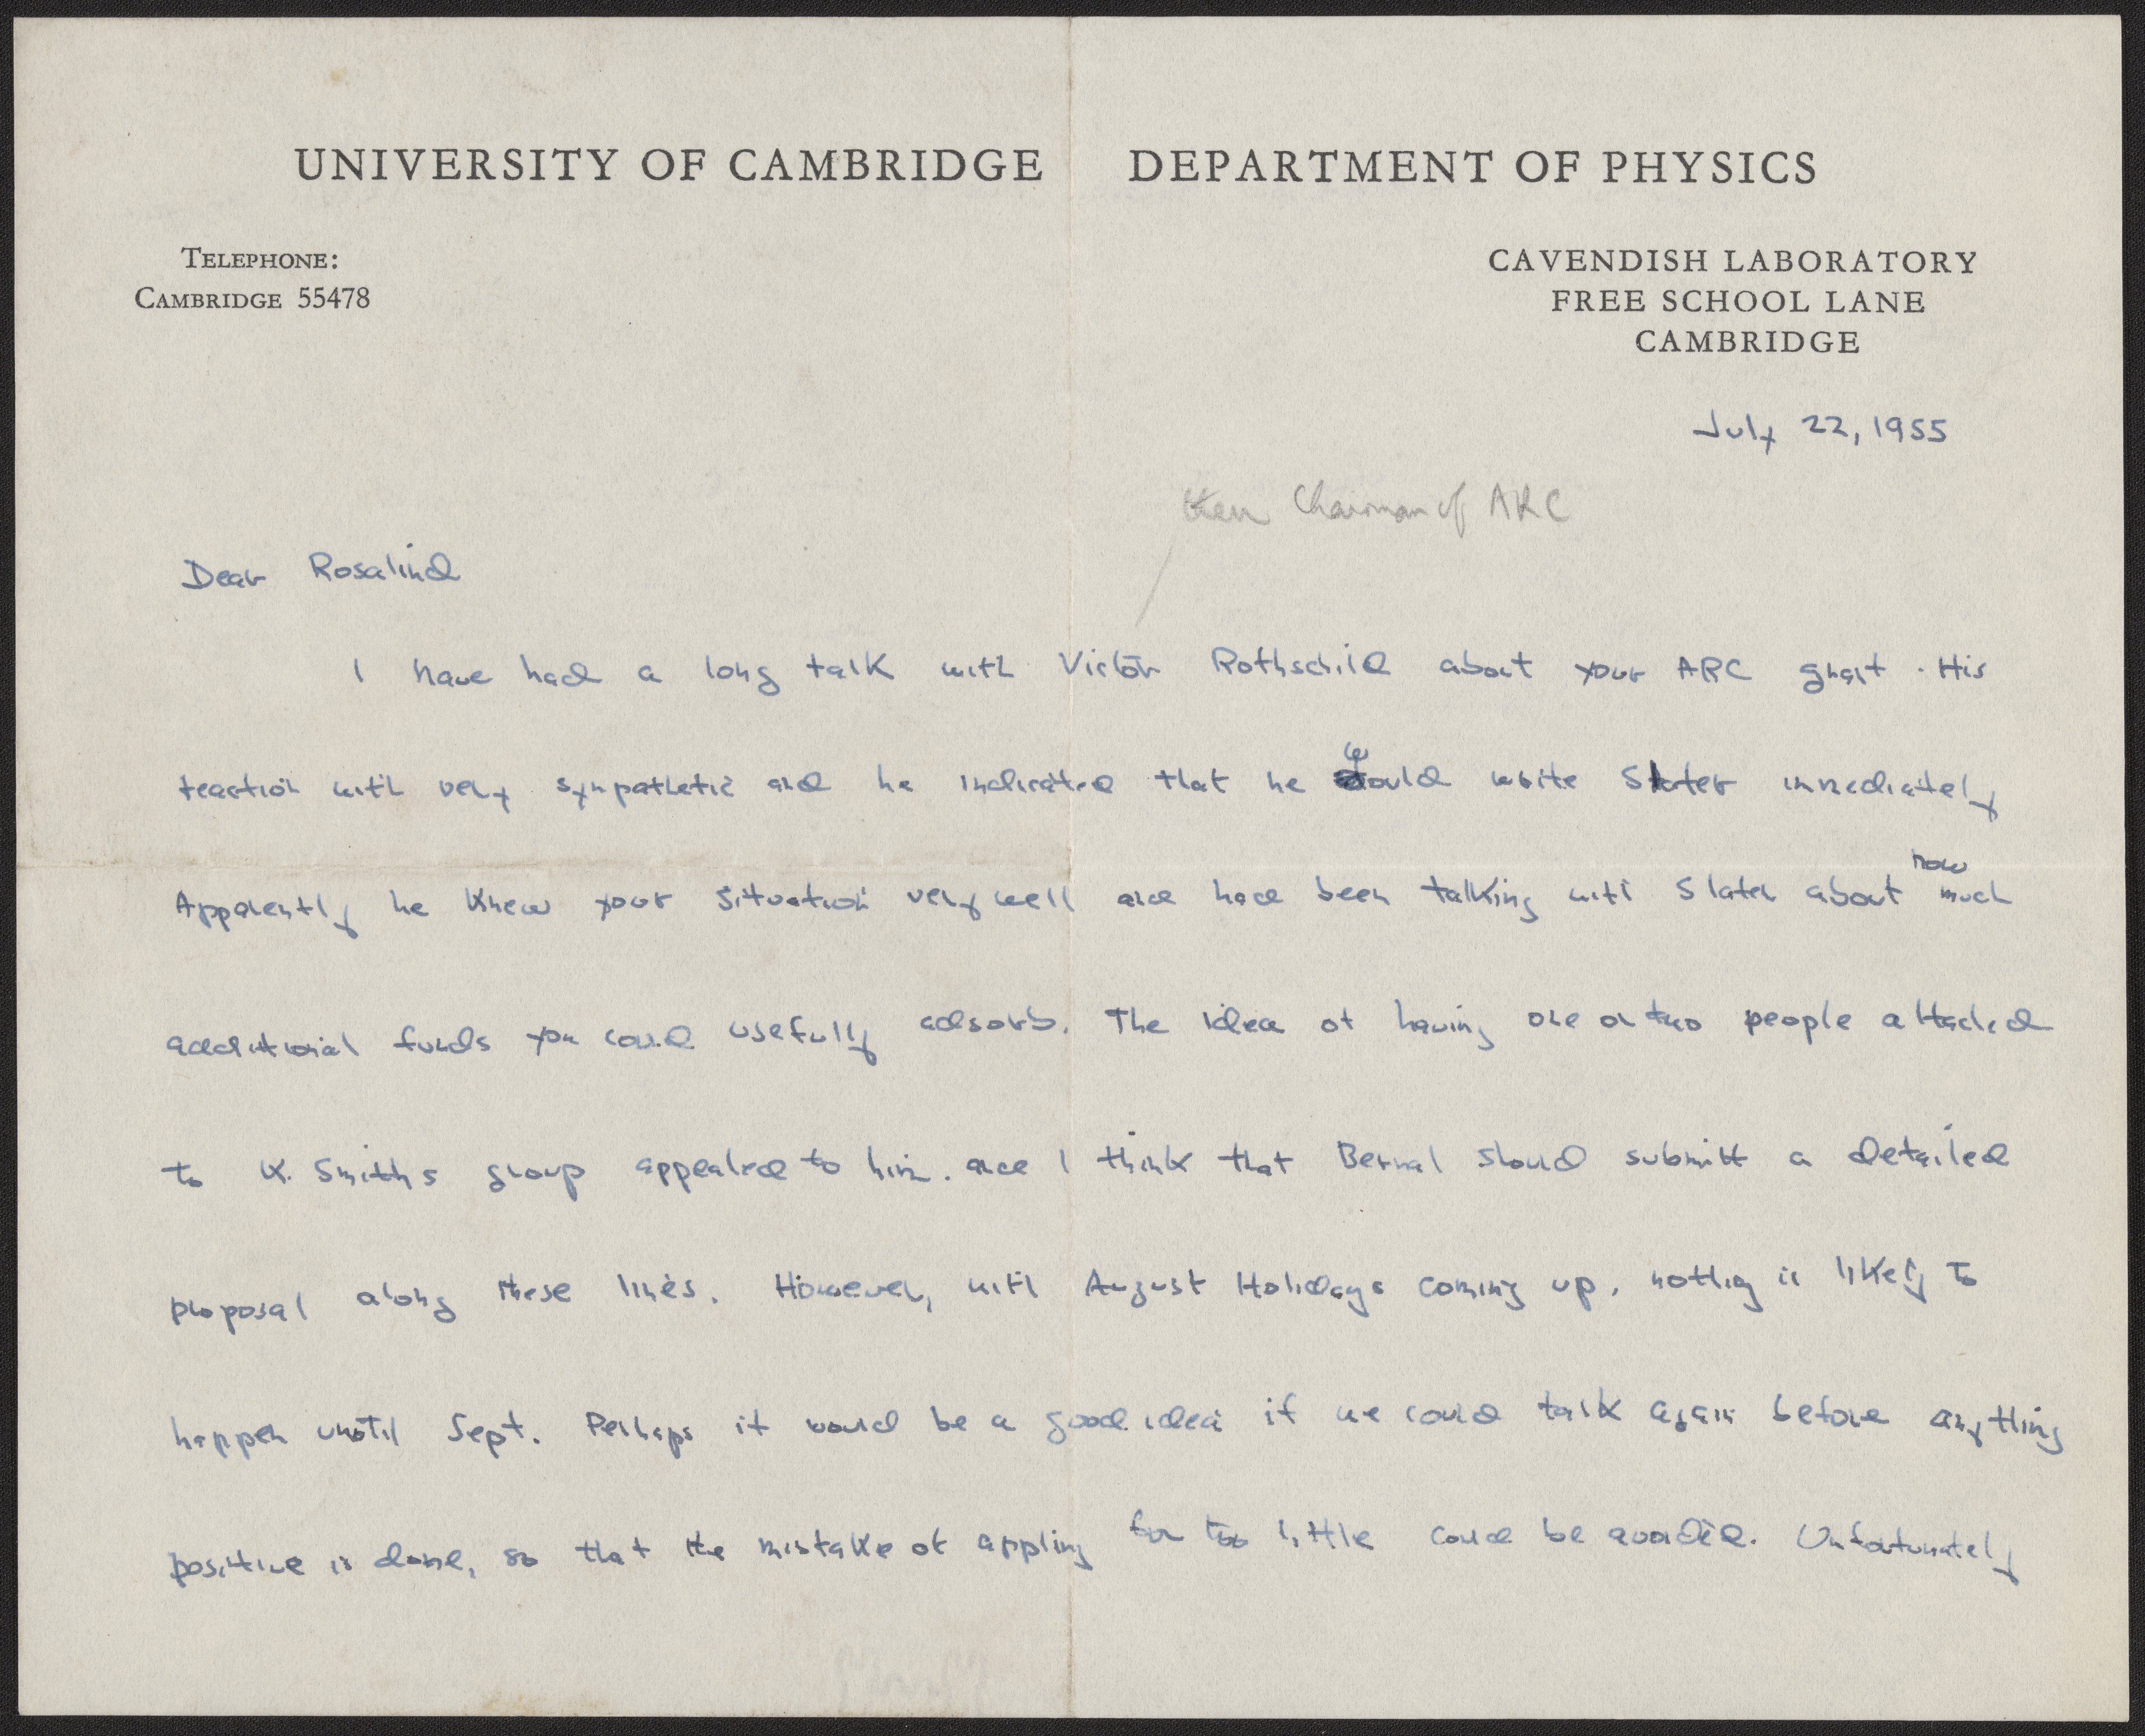 UNIVERSITY OF CAMBRIDGE DEPARTMENT OF PHYSICS
TELEPHONE:
CAMBRIDGE 55478
CAVENDISH LABORATORY
FREE SCHOOL LANE
CAMBRIDGE
July 22, 1955
then Chairman of ARC
Dear Rosalind
I have had a long talk with Victor Rothschild about your ARC grant. His
reaction with very sympathetic and he indicated that he would write Slater immediately
Apparently he knew your situation very well and had been talking with Slater about how much
additional funds you could usefully adsorb. The idea of having one or two people attached
to K. Smiths group appealed to him. and I think that Bernal should submitt a detailed
proposal along these lines. However, with August Holidays coming up, nothing is likely to
happen until Sept. Perhaps it would be a good idea if we could talk again before anything
positive is done, so that the mistake of appling for too little could be avoided. Unfortunately